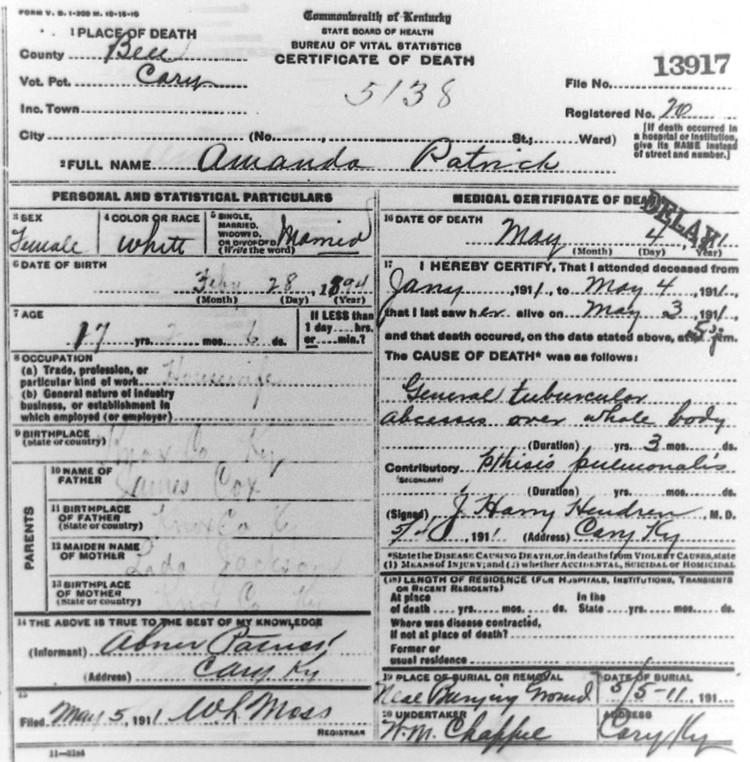 FORM V. S. 1-300 M. 12-15-10
Commonwealth of Kentucky
STATE BOARD OF HEALTH
BUREAU OF VITAL STATISTICS
CERTIFICATE OF DEATH
1 PLACE OF DEATH
County Bell
Vot. Pct. Cary
Inc. Town
City (No. , St.; Ward)
5138
13917
File No.
Registered No. 20
[If death occurred in a hospital or institution, give its NAME instead of street and number.]
2 FULL NAME Amanda Patrick
PERSONAL AND STATISTICAL PARTICULARS
3 SEX Female
4 COLOR OR RACE White
5 SINGLE, MARRIED, WIDOWED, OR DIVORCED (Write the word) Married
6 DATE OF BIRTH
Feby 28 1894
(Month) (Day) (Year)
7 AGE
17 yrs. 2 mos. 6 ds.
If LESS than 1 day hrs. or min.?
8 OCCUPATION
(a) Trade, profession, or particular kind of work Housewife
(b) General nature of industry business, or establishment in which employed (or employer)
9 BIRTHPLACE (State or country) Knox Co Ky
PARENTS
10 NAME OF FATHER James Cox
11 BIRTHPLACE OF FATHER (State or country) Knox Co Ky
12 MAIDEN NAME OF MOTHER Jackson
13 BIRTHPLACE OF MOTHER (State or country) Knox Co Ky
14 THE ABOVE IS TRUE TO THE BEST OF MY KNOWLEDGE
(Informant) Abner
(Address) Cary Ky
15
Filed May 5, 1911 W L Moss
REGISTRAR
11—3184
MEDICAL CERTIFICATE OF DEATH
DELAY
16 DATE OF DEATH
May 4, 1911
(Month) (Day) (Year)
17 I HEREBY CERTIFY, That I attended deceased from
Jany , 1911, to May 4 , 1911,
that I last saw her alive on May 3 , 1911,
and that death occured, on the date stated above, at 5 m.
The CAUSE OF DEATH* was as follows:
General tubercular
abcesses over whole body
(Duration) yrs. 3 mos. ds.
Contributory Pthisis pulmonalis
(SECONDARY)
(Duration) yrs. mos. ds.
(Signed) J. Harry Hendren , M. D.
1911 (Address) Cary Ky
*State the DISEASE CAUSING DEATH, or, in deaths from VIOLENT CAUSES, state (1) MEANS OF INJURY; and (2) whether ACCIDENTAL, SUICIDAL or HOMICIDAL
(18) LENGTH OF RESIDENCE (FOR HOSPITALS, INSTITUTIONS, TRANSIENTS OR RECENT RESIDENTS)
At place of death yrs. mos. ds. In the State yrs. mos. ds.
Where was disease contracted, If not at place of death?
Former or usual residence
19 PLACE OF BURIAL OR REMOVAL
Neal Burying Ground
DATE OF BURIAL
5/5-11, 191
20 UNDERTAKER
W. M. Chappel
ADDRESS
Cary Ky